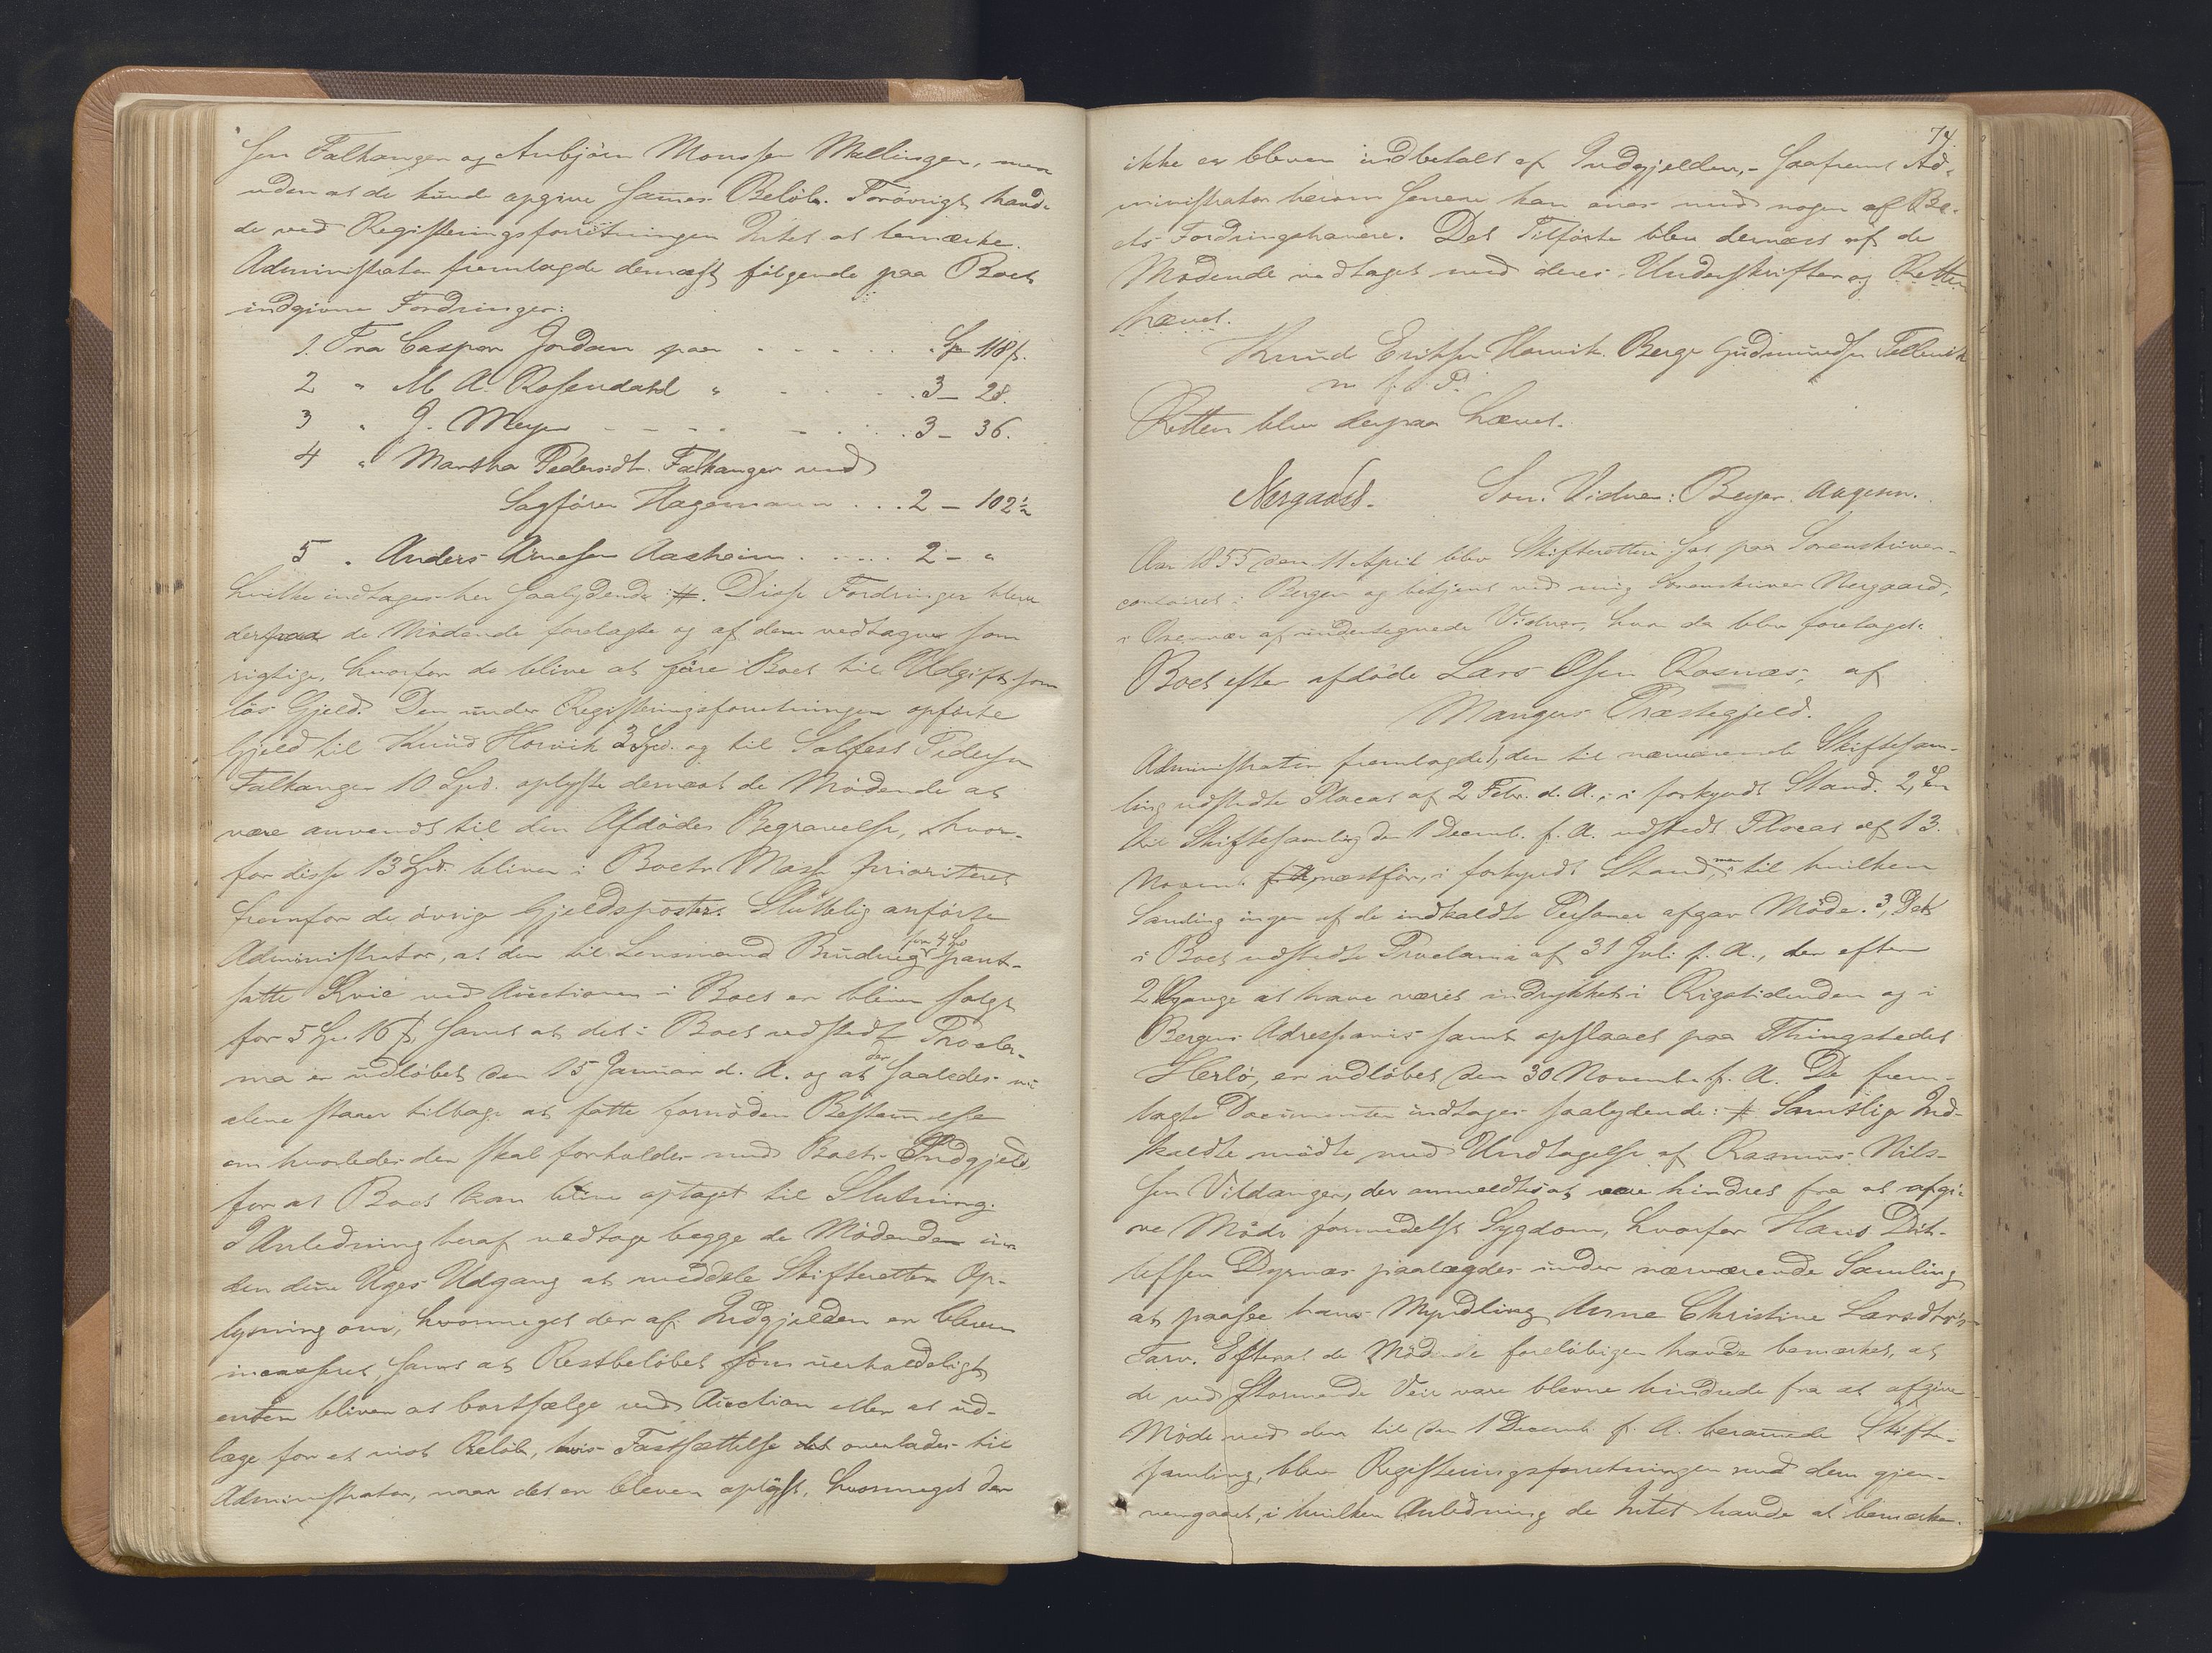 sen Falkanger og Anbjörn Monssen Mællingen, men
uden at de kunde opgive sammes Belöb. Forövrigt havde
de ved Registeringsforretningen Intet at bemærke.
Administrator fremlagde dernæst følgende paa Boet
indgivne Fordringer:
1. Fra Casper Jordan paa . . . . . Sp 118 s.
2 " M A. Rosendahl " . . . . 3 – 28.
3 " J. Meyer – – – – . . . 3 – 36.
4 " Martha Pedersdtr. Falkanger ved
Sagförer Hagemann . . . 2 – 102½
5 . Anders Arnesen Aasheim . . . . . 2 – "
hvilke indtages her saalydende: #. Disse Fordringer bleve
derpaa de Mödende forelagte og af dem vedtagne som
rigtige, hvorfor de blive at före Boet til Udgift som
lös Gjeld. Den under Registeringsforretningen opförte
Gjeld til Knud Horvik 3 Spd. og til Solfest Pedersen
Falkanger 10 Spd. oplyste dernæst de Mödende at
være anvendt til den Afdödes Begravelse, hvor-
for disse 13 Spd. bliver i Boets Masse prioriteret
fremfor de övrige Gjeldsposter. Sluttelig anförte
Administrator, at den til Lensmand Brudvig for 4 Spd pant-
satte Kvie ved Auctionen i Boet er bleven solgt
for 5 Sp. 16 s, samt at det i Boet udstedte Procla-
ma er udlöbet den 15 Januar d. A. og at der saaledes nu
alene staaer tilbage at fatte fornöden Bestemmelse
om hvorledes der skal forholdes med Boets Indgjeld
for at Boet kan blive optaget til Slutning.
I Anledning heraf vedtoge begge de Mödende in-
den dine Uges Udgang at meddele Skifteretten Op-
lysning om, hvormeget der af Indgjelden er bleven
incasseret, samt at Restbelöbet som uerholdeligt
enten bliver at bortsælge ved Auction eller at ud-
lægge for et vist Belöb, hvis Fastsættelse det overlades til
Administrator, naar det er bleven oplyst, hvormeget der
74.
ikke er bleven indbetalt af Indgjelden, – saafremt Ad-
ministrator herom senere kan enes med nogen af Bo-
ets Fordringshavere. Det Tilförte blev dernæst af de
Mödende vedtaget med deres Underskrifter og Retten
hævet.
Knud Eriksen Horvik. Berge Gudmundsen Tellevik
m. f. P.
Retten blev derpaa hævet.
Nergaard. Som Vidner: Beyer. Aagesen.
Aar 1855 den 11 April blev Skifteretten sat paa Sorenskriver-
contoiret i Bergen og betjent ved mig Sorenskriver Nergaard,
i Overvær af undertegnede Vidner, hvor da blev foretaget:
Boet efter afdöde Lars Olsen Rosnæs, af
Mangers Præstegjeld.
Administrator fremlagde 1, den til nærværende Skiftesam-
ling udstedte Placat af 2 Febr. d. A., i forkyndt Stand. 2, En
til Skiftesamling den 1 Decemb. f. A. udstedt Placat af 13
Novemb. næstför, i forkyndt Stand, men til hvilken
Samling ingen af de indkaldte Personer afgav Möde. 3, Det
i Boet udstedte Proclama af 31 Juli f. A., der efter
2 Gange at have været indrykket i Rigstidenden og i
Bergens Adresseavis samt opslaaet paa Thingstedet
Herlö, er udlöbet den 30 Novemb. f. A. De frem-
lagte Documenter indtages saalydende: # Samtlige Ind-
kaldte mödte med Undtagelse af Rasmus Nils-
sen Vildanger, der anmeldtes at være hindret fra at afgi-
ve Möde formedelst Sygdom, hvorfor Hans Dit-
lefsen Dyrnæs paalagdes under nærværende Samling
at paasee hans Myndling Anne Christine Larsdtr's
Tarv. Efterat de Mödende forelöbigen havde bemærket, at
de ved stormende Veir vare blevne hindrede fra at afgive
Möde ved den til den 1 Decemb. f. A. berammede Skifte-
samling, blev Registeringsforretningen med dem gjen-
nemgaaet, i hvilken Anledning de Intet havde at bemærke.